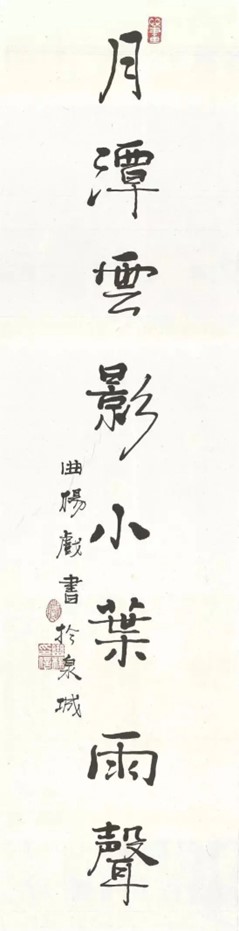 月潭雲影小葉雨聲
曲楊戲書於泉城